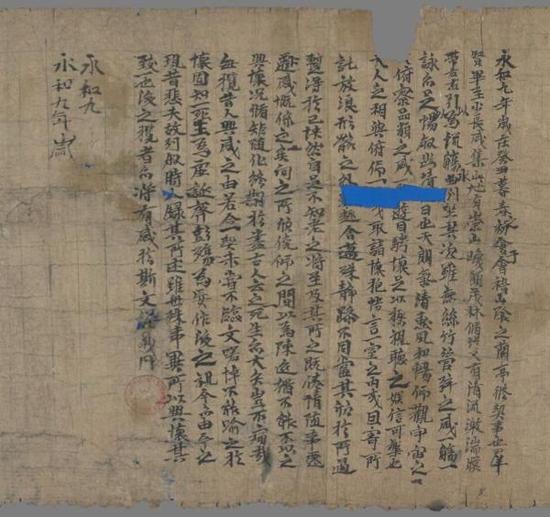 永和九年歲在癸丑暮春會會稽山陰之蘭亭脩禊事也羣
賢畢至少長咸集此地有崇山峻領茂林脩竹又有清流激湍暎
帶左右引以為流觴曲水列坐其次雖無絲竹管絃之盛一觴一
詠亦足以暢敘幽情是日也天朗氣清惠風和暢仰觀宇宙之大
俯察品類之盛所以遊目騁懷足以極視聽之娛信可樂也
夫人之相與俯仰一或取諸懷抱悟言一室之內或因寄所
託放浪形骸之外趣舍萬殊靜躁不同當其欣於所遇
蹔得於己怏然自足不知老之將至及其所之既惓情隨事遷
感慨係之矣向之所欣俛仰之間以為陳迹猶不能不以之
興懷況脩短隨化終期於盡古人云死生亦大矣豈不痛哉
每攬昔人興感之由若合一契未嘗不臨文嗟悼不能喻之於
懷固知一死生為虛誕齊彭殤為妄作後之視今亦由今之
視昔悲夫故列敘時人錄其所述雖世殊事異所以興懷其
致一也後之攬者亦將有感於斯文
永和九
永和九年歲